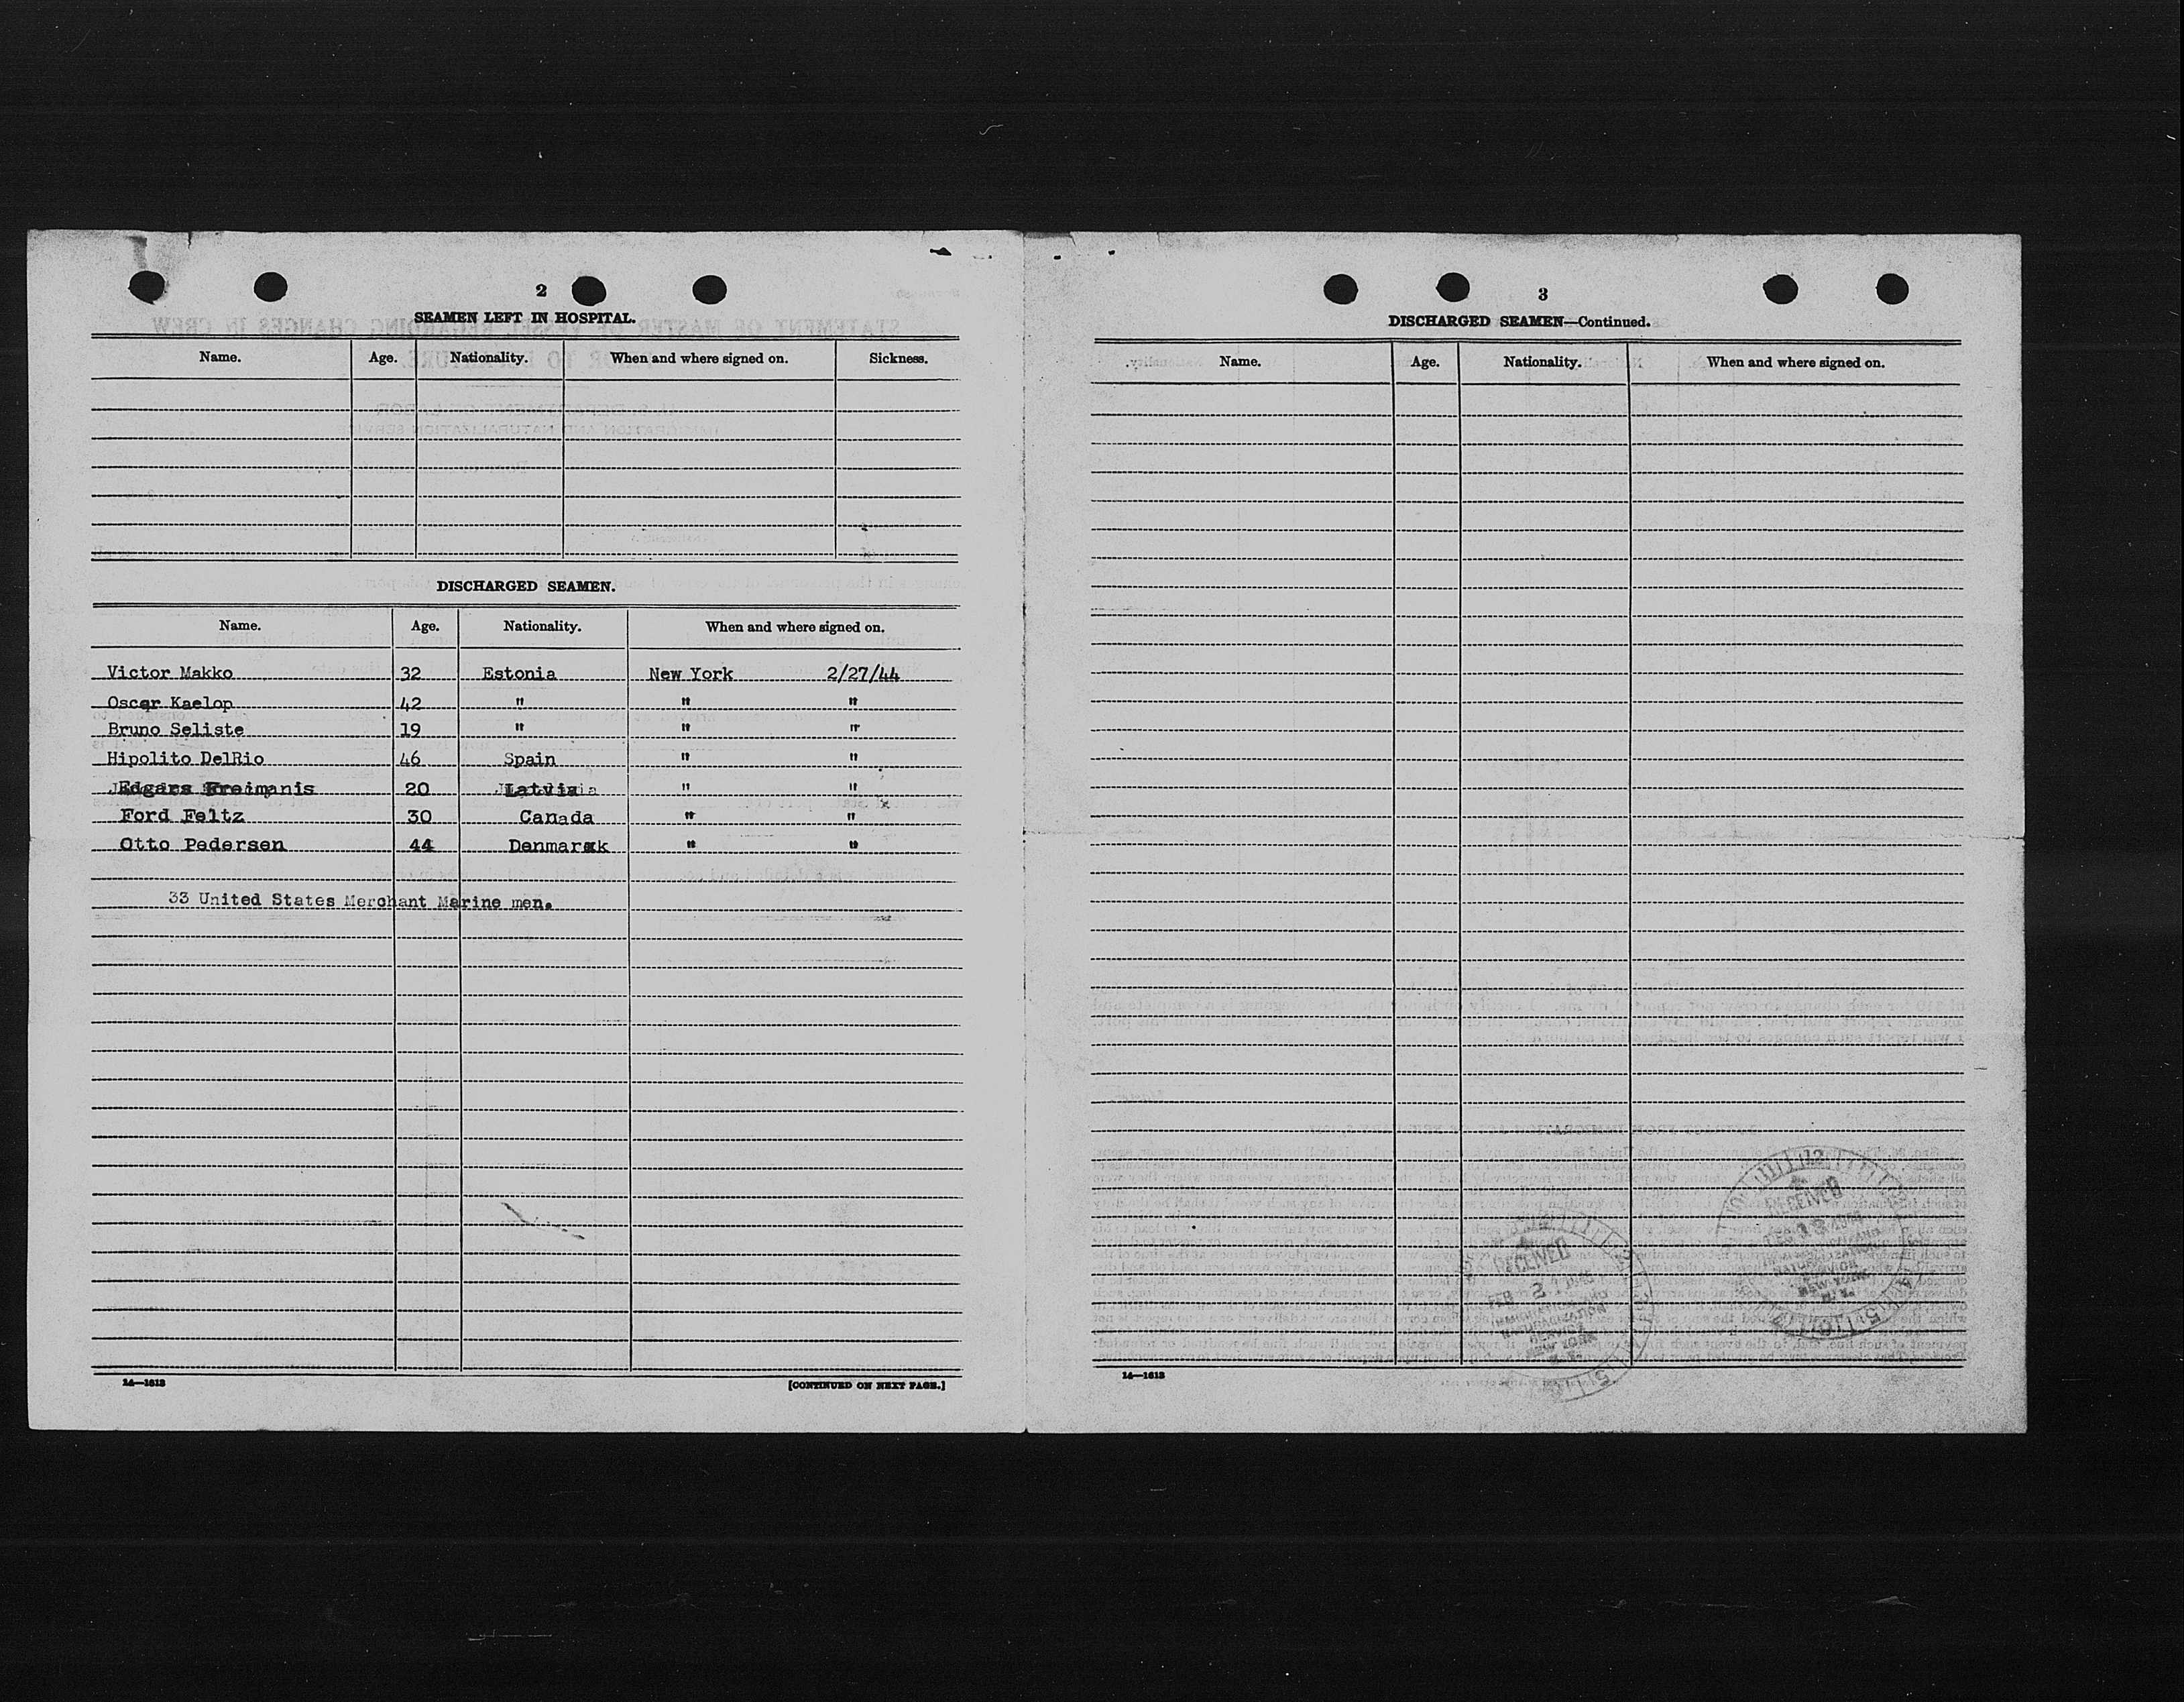 2
SEAMEN LEFT IN HOSPITAL.
Name. Age. Nationality. When and where signed on. Sickness.
DISCHARGED SEAMEN.
Name. Age. Nationality. When and where signed on.
Victor Makko 32 Estonia New York 2/27/44
Oscar Kaelop 42 " " "
Bruno Seliste 19 " " "
Hipolito DelRio 46 Spain " "
Edgars Freimanis 20 Latvia " "
Ford Feltz 30 Canada " "
Otto Pedersen 44 Denmark " "
33 United States Merchant Marine men.
14—1613
[CONTINUED ON NEXT PAGE.]
3
DISCHARGED SEAMEN—Continued.
Name. Age. Nationality. When and where signed on.
RECEIVED
FEB
IMMIGRATION AND
NATURALIZATION
SERVICE
NEW YORK
RECEIVED
NATURALIZATION
SERVICE
NEW YORK
14—1613